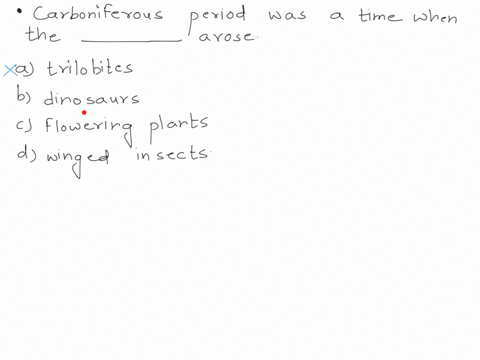 • Carboniferous period was a time when
the __________ arose.
xa) trilobites
b) dinosaurs
c) flowering plants
d) winged insects.